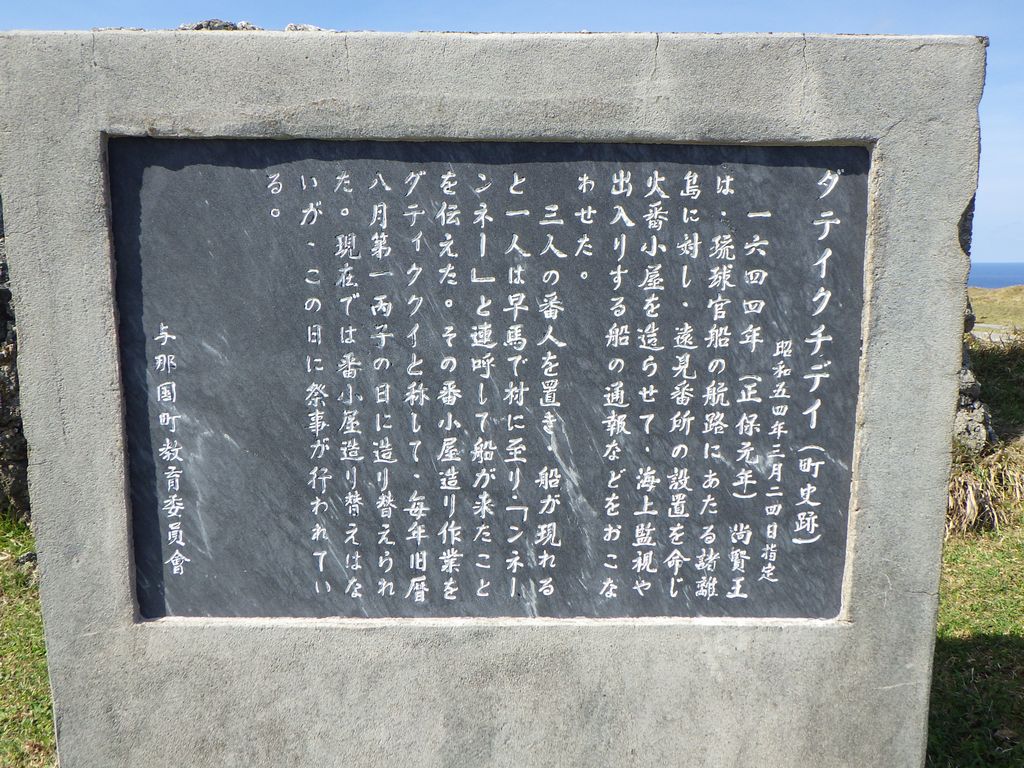 ダティクチディ（町史跡）
昭和五四年三月二四日指定
一六四四年（正保元年）尚賢王
は、琉球官船の航路にあたる諸離
島に対し、遠見番所の設置を命じ
火番小屋を造らせて、海上監視や
出入りする船の通報などをおこな
わせた。
三人の番人を置き、船が現れる
と一人は早馬で村に至り「ンネー
ンネー」と連呼して船が来たこと
を伝えた。その番小屋造り作業を
ダティククイと称して、毎年旧暦
八月第一丙子の日に造り替えられ
た。現在では番小屋造り替えはな
いが、この日に祭事が行われてい
る。
与那国町教育委員會